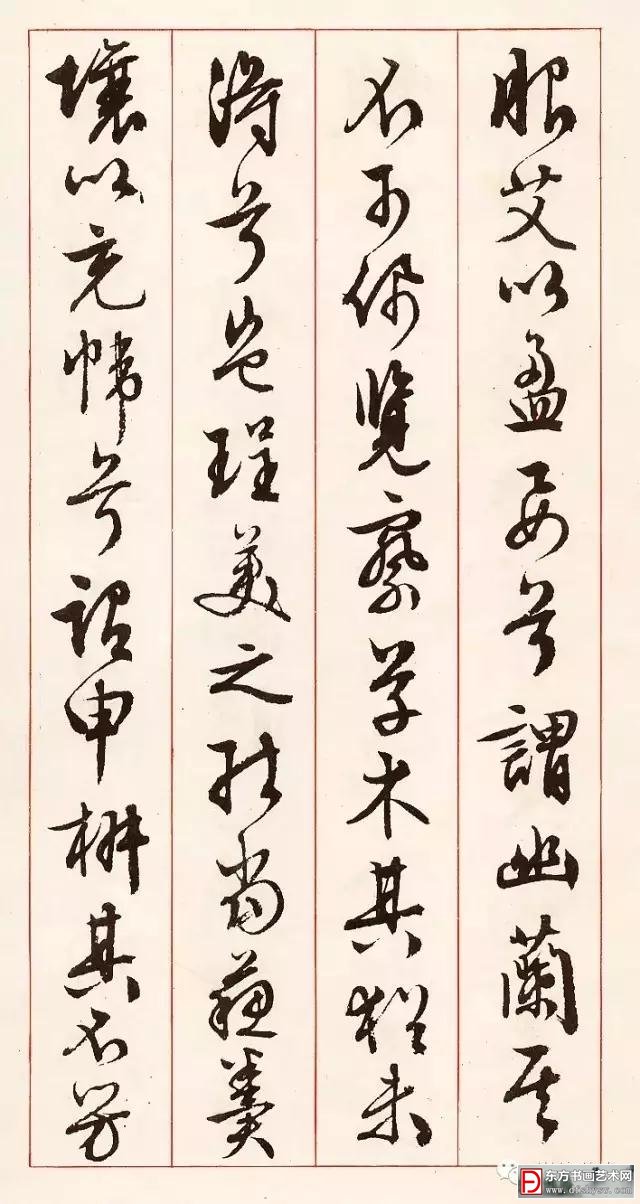 服艾以盈要兮謂幽蘭其
不可佩覽察草木其猶未
得兮豈珵美之能當蘇糞
壤以充幃兮謂申椒其不芳
东方书画艺术网